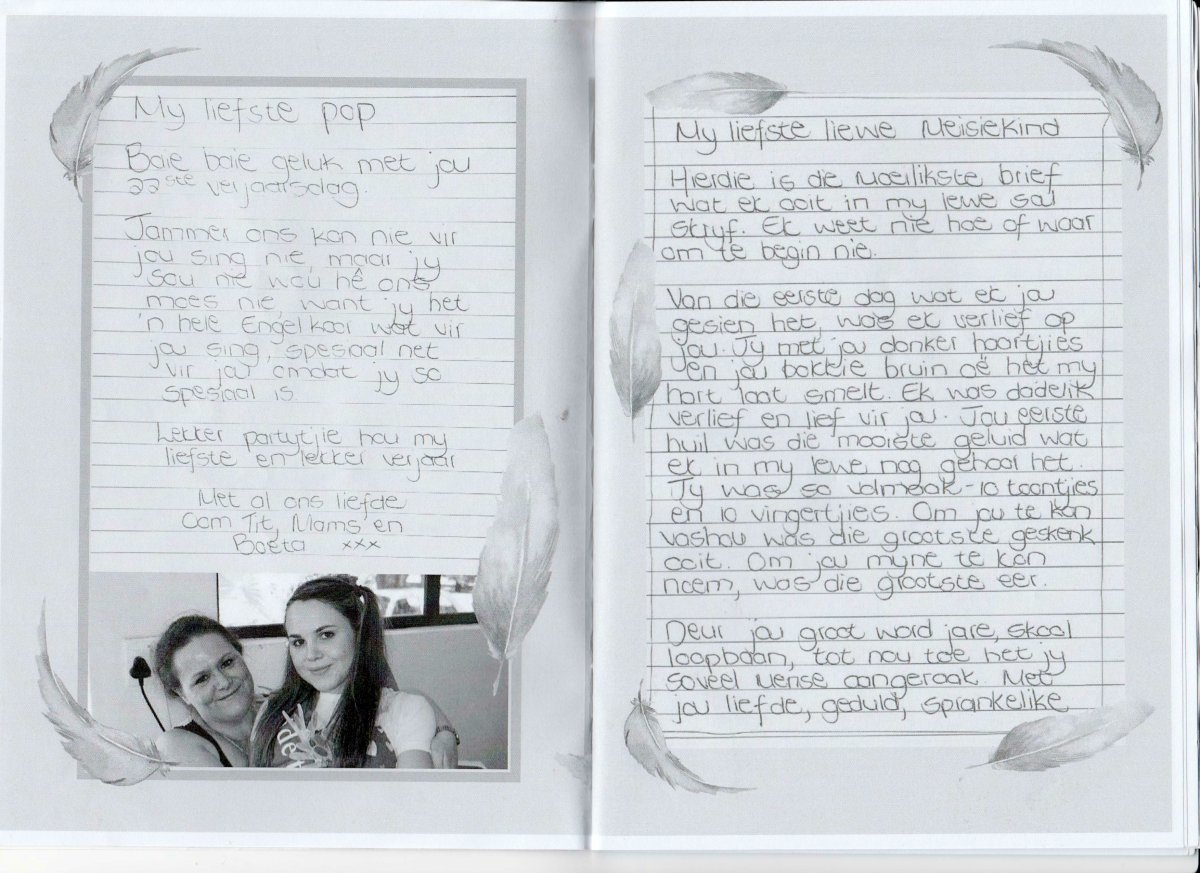 My liefste pop
Baie baie geluk met jou
22ste verjaarsdag.
Jammer ons kan nie vir
jou sing nie, maar jy
sou nie wou hê ons
moes nie, want jy het
'n hele Engel koor wat vir
jou sing, spesiaal net
vir jou omdat jy so
spesiaal is
Lekker partytjie hou my
liefste en lekker verjaar
Met al ons liefde
Oom Tit, Mams en
Boeta xxx
My liefste liewe Meisiekind
Hierdie is de moeilikste brief
wat ek ooit in my lewe sal
skryf. Ek weet nie hoe of waar
om te begin nie.
Van die eerste dag wat ek jou
gesien het, was ek verlief op
jou. Jy met jou donker haartjies
en jou bokkie bruin oë het my
hart laat smelt. Ek was dadelik
verlief en lief vir jou. Jou eerste
huil was die mooiste geluid wat
ek in my lewe nog gehoor het.
Jy was so volmaak - 10 toontjies
en 10 vingertjies. Om jou te kan
vashou was die grootste geskenk
ooit. Om jou myne te kan
noem, was die grootste eer.
Deur jou groot word jare, skool
loopbaan, tot nou toe het jy
soveel mense aangeraak. Met
jou liefde, geduld, sprankelike